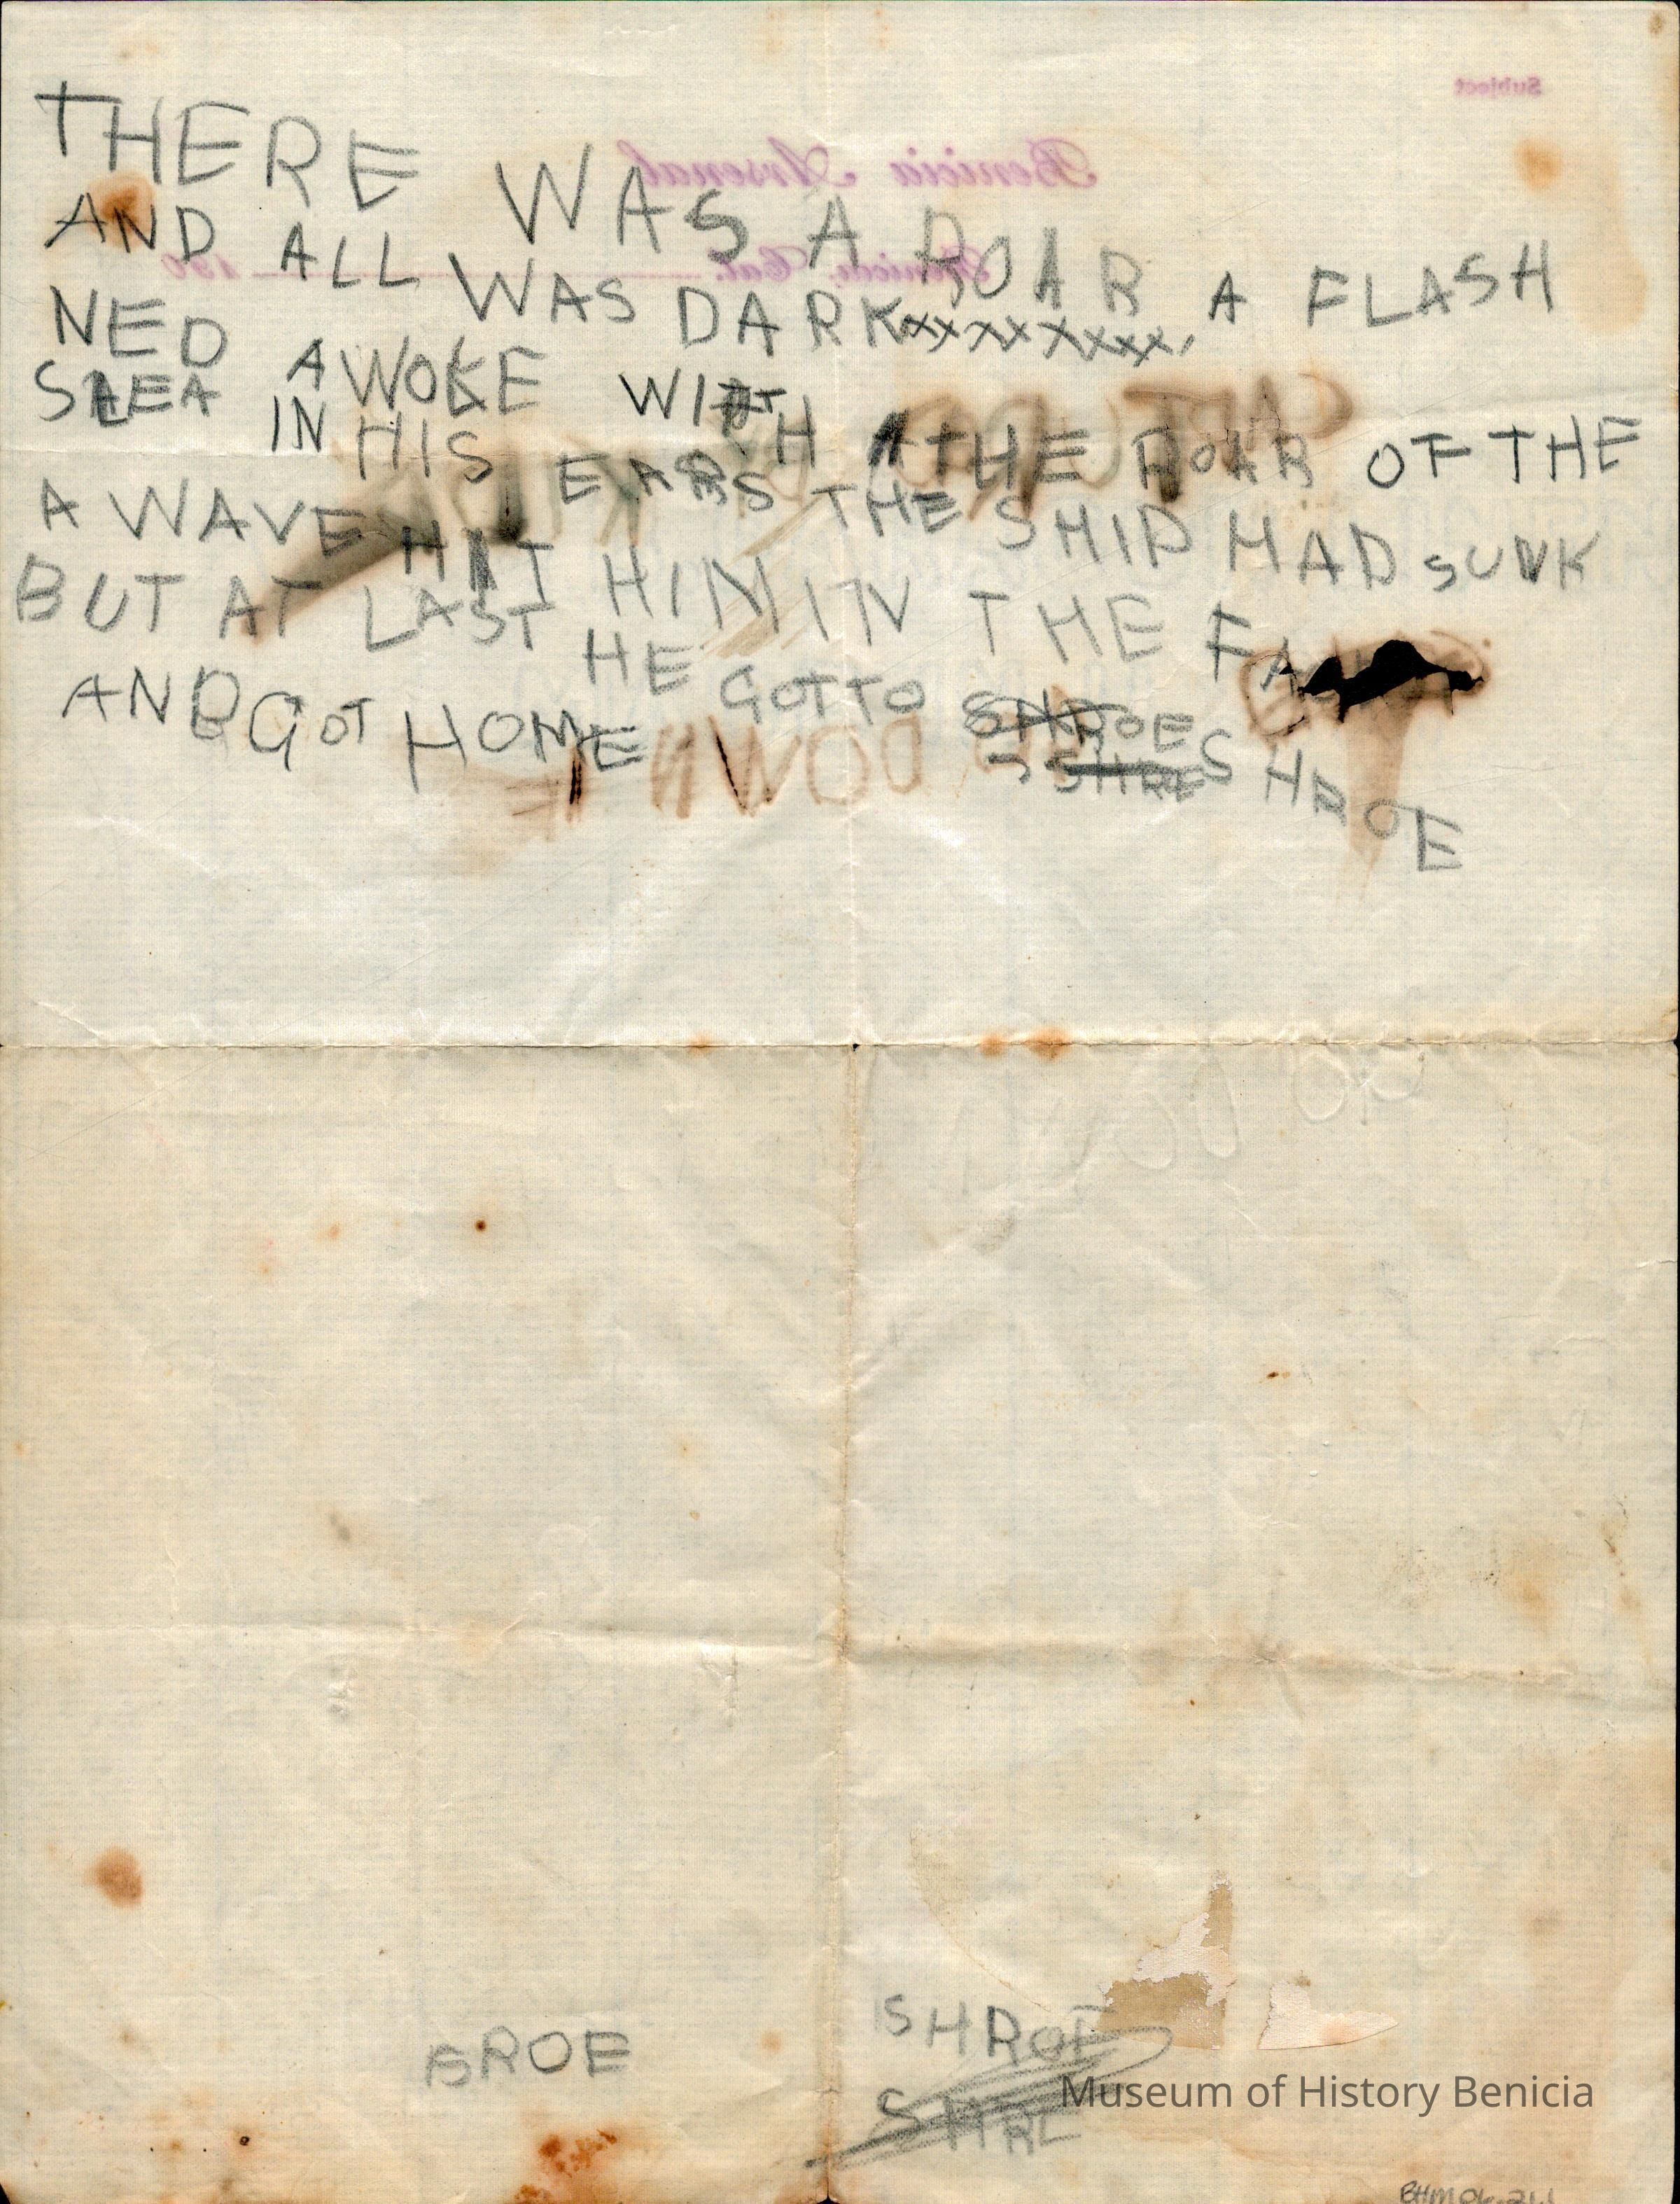 Subject
Benicia Arsenal
Benicia, Cal. 190
THERE WAS A ROAR A FLASH
AND ALL WAS DARK xxxxxxxxx,
NED AWOKE WITH THE ROAR OF THE
SEA IN HIS EARS THE SHIP HAD SUNK
A WAVE HIT HIM IN THE
BUT AT LAST HE GOT TO SHROE
SHRE SHROE
AND GOT HOME
DOWN
SROE
SHROE
SHRE
Museum of History Benicia